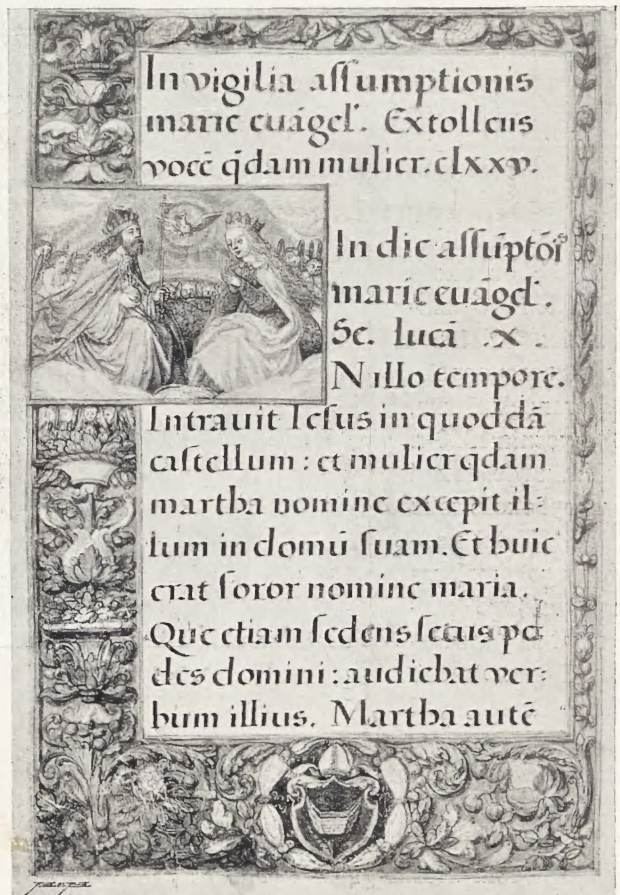 In vigilia assumptionis
marie euāgel'. Extollens
vocē q̄dam mulier. clxxv.
In die assūptōīs
marie euāgel'.
Sc. lucā .x.
N illo tempore.
Intrauit Iesus in quoddā
castellum : et mulier q̄dam
martha nomine excepit il:
lum in domū suam. Et huic
erat soror nomine maria.
Que etiam sedens secus pe
des domini : audiebat ver:
bum illius. Martha autē